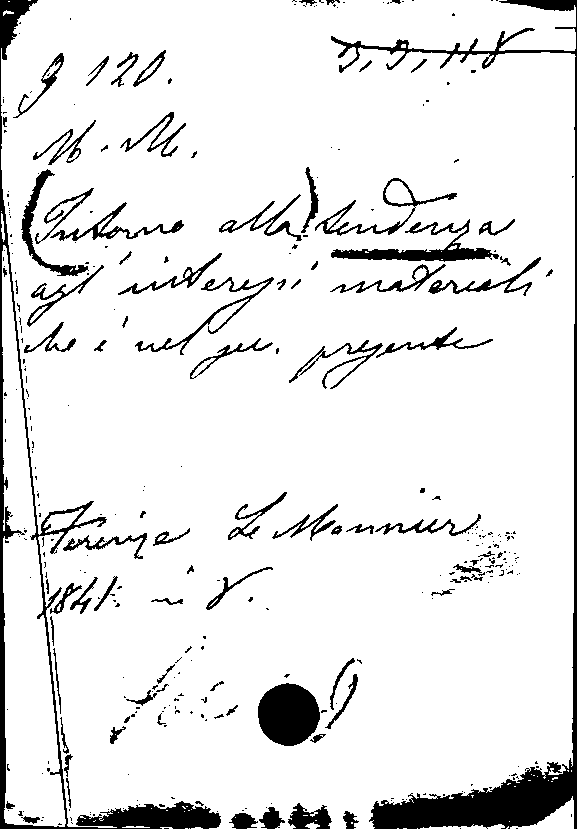 9 120. 3, 3, 11. 8
M. M.
(Intorno alla) tendenza
agl' interessi materiali
che è nel sec. presente
Firenze Le Monnier
1841. in 8.